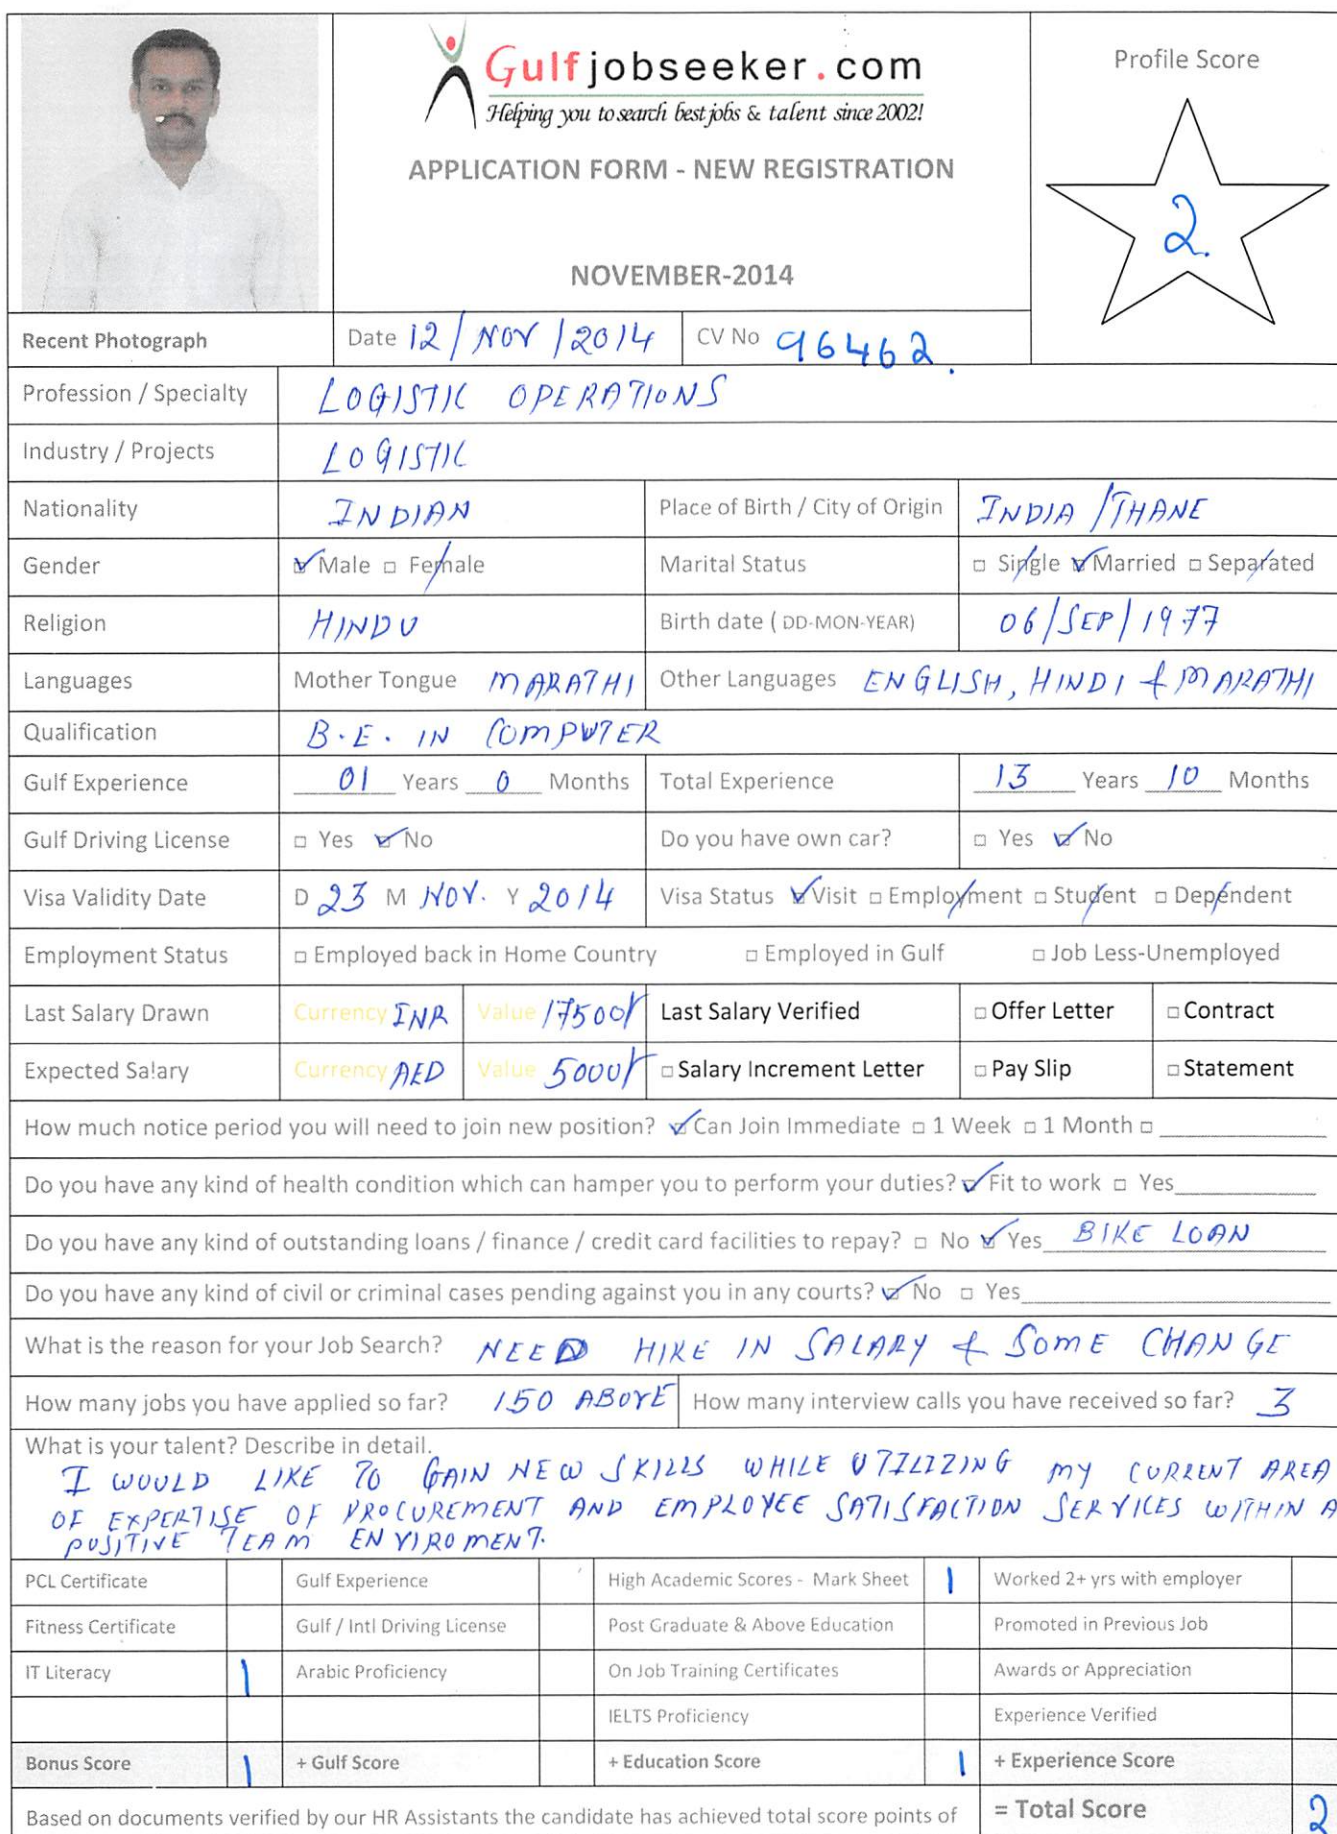 Gulfjobseeker.com
Helping you to search best jobs & talent since 2002!
APPLICATION FORM - NEW REGISTRATION
NOVEMBER-2014
Profile Score
2.
Recent Photograph
Date 12/NOV/2014 CV No 96462.
Profession / Specialty LOGISTIC OPERATIONS
Industry / Projects LOGISTIC
Nationality INDIAN Place of Birth / City of Origin INDIA / THANE
Gender ☑ Male □ Female Marital Status □ Single ☑ Married □ Separated
Religion HINDU Birth date ( DD-MON-YEAR) 06/SEP/1977
Languages Mother Tongue MARATHI Other Languages ENGLISH, HINDI & MARATHI
Qualification B.E. IN COMPUTER
Gulf Experience 01 Years 0 Months Total Experience 13 Years 10 Months
Gulf Driving License □ Yes ☑ No Do you have own car? □ Yes ☑ No
Visa Validity Date D 23 M NOV. Y 2014 Visa Status ☑ Visit □ Employment □ Student □ Dependent
Employment Status □ Employed back in Home Country □ Employed in Gulf □ Job Less-Unemployed
Last Salary Drawn Currency INR Value 17500/ Last Salary Verified □ Offer Letter □ Contract
Expected Salary Currency AED Value 5000/ □ Salary Increment Letter □ Pay Slip □ Statement
How much notice period you will need to join new position? ☑ Can Join Immediate □ 1 Week □ 1 Month □
Do you have any kind of health condition which can hamper you to perform your duties? ☑ Fit to work □ Yes
Do you have any kind of outstanding loans / finance / credit card facilities to repay? □ No ☑ Yes BIKE LOAN
Do you have any kind of civil or criminal cases pending against you in any courts? ☑ No □ Yes
What is the reason for your Job Search? NEED HIKE IN SALARY & SOME CHANGE
How many jobs you have applied so far? 150 ABOVE How many interview calls you have received so far? 3
What is your talent? Describe in detail.
I WOULD LIKE TO GAIN NEW SKILLS WHILE UTILIZING MY CURRENT AREA
OF EXPERTISE OF PROCUREMENT AND EMPLOYEE SATISFACTION SERVICES WITHIN A
POSITIVE TEAM ENVIROMENT.
PCL Certificate Gulf Experience High Academic Scores - Mark Sheet 1 Worked 2+ yrs with employer
Fitness Certificate Gulf / Intl Driving License Post Graduate & Above Education Promoted in Previous Job
IT Literacy 1 Arabic Proficiency On Job Training Certificates Awards or Appreciation
IELTS Proficiency Experience Verified
Bonus Score 1 + Gulf Score + Education Score 1 + Experience Score
Based on documents verified by our HR Assistants the candidate has achieved total score points of = Total Score 2